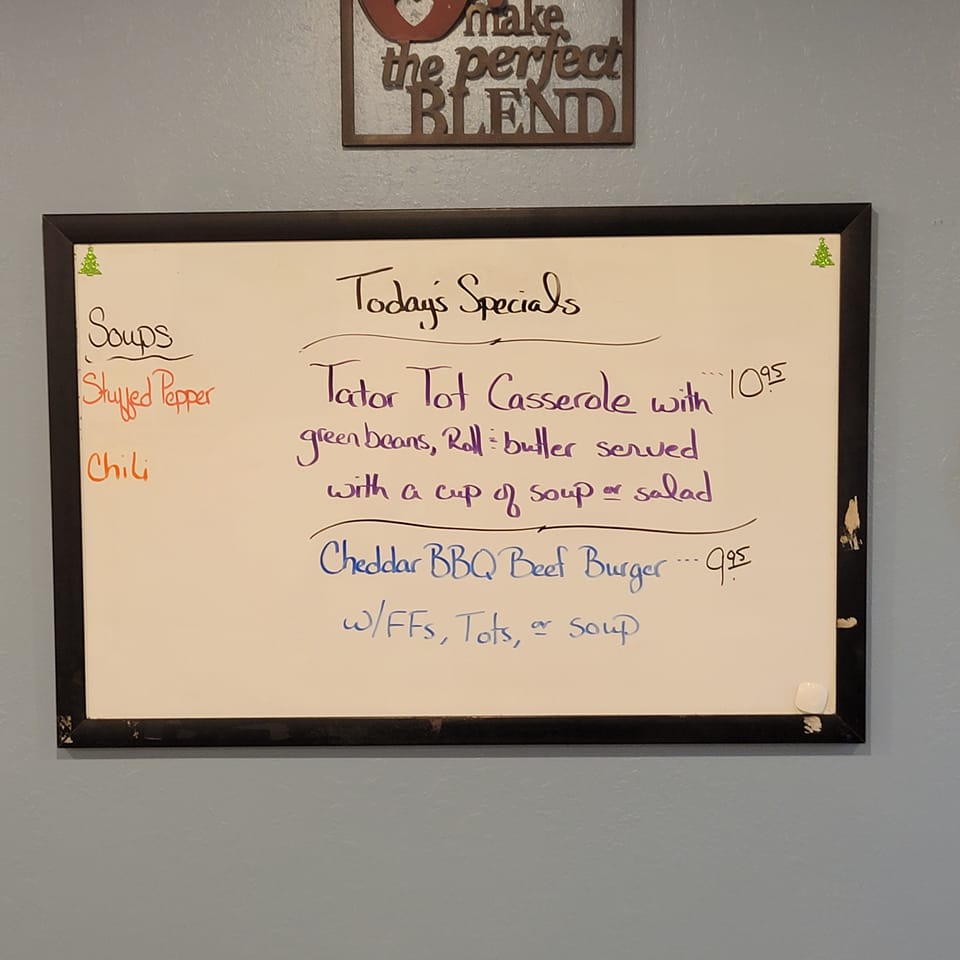 make
the perfect
BLEND
Today's Specials
Soups
Stuffed Pepper
Chili
Tator Tot Casserole with ... 10.95
green beans, Roll & butter served
with a cup of soup or salad
Cheddar BBQ Beef Burger ... 9.95
w/FFs, Tots, or soup